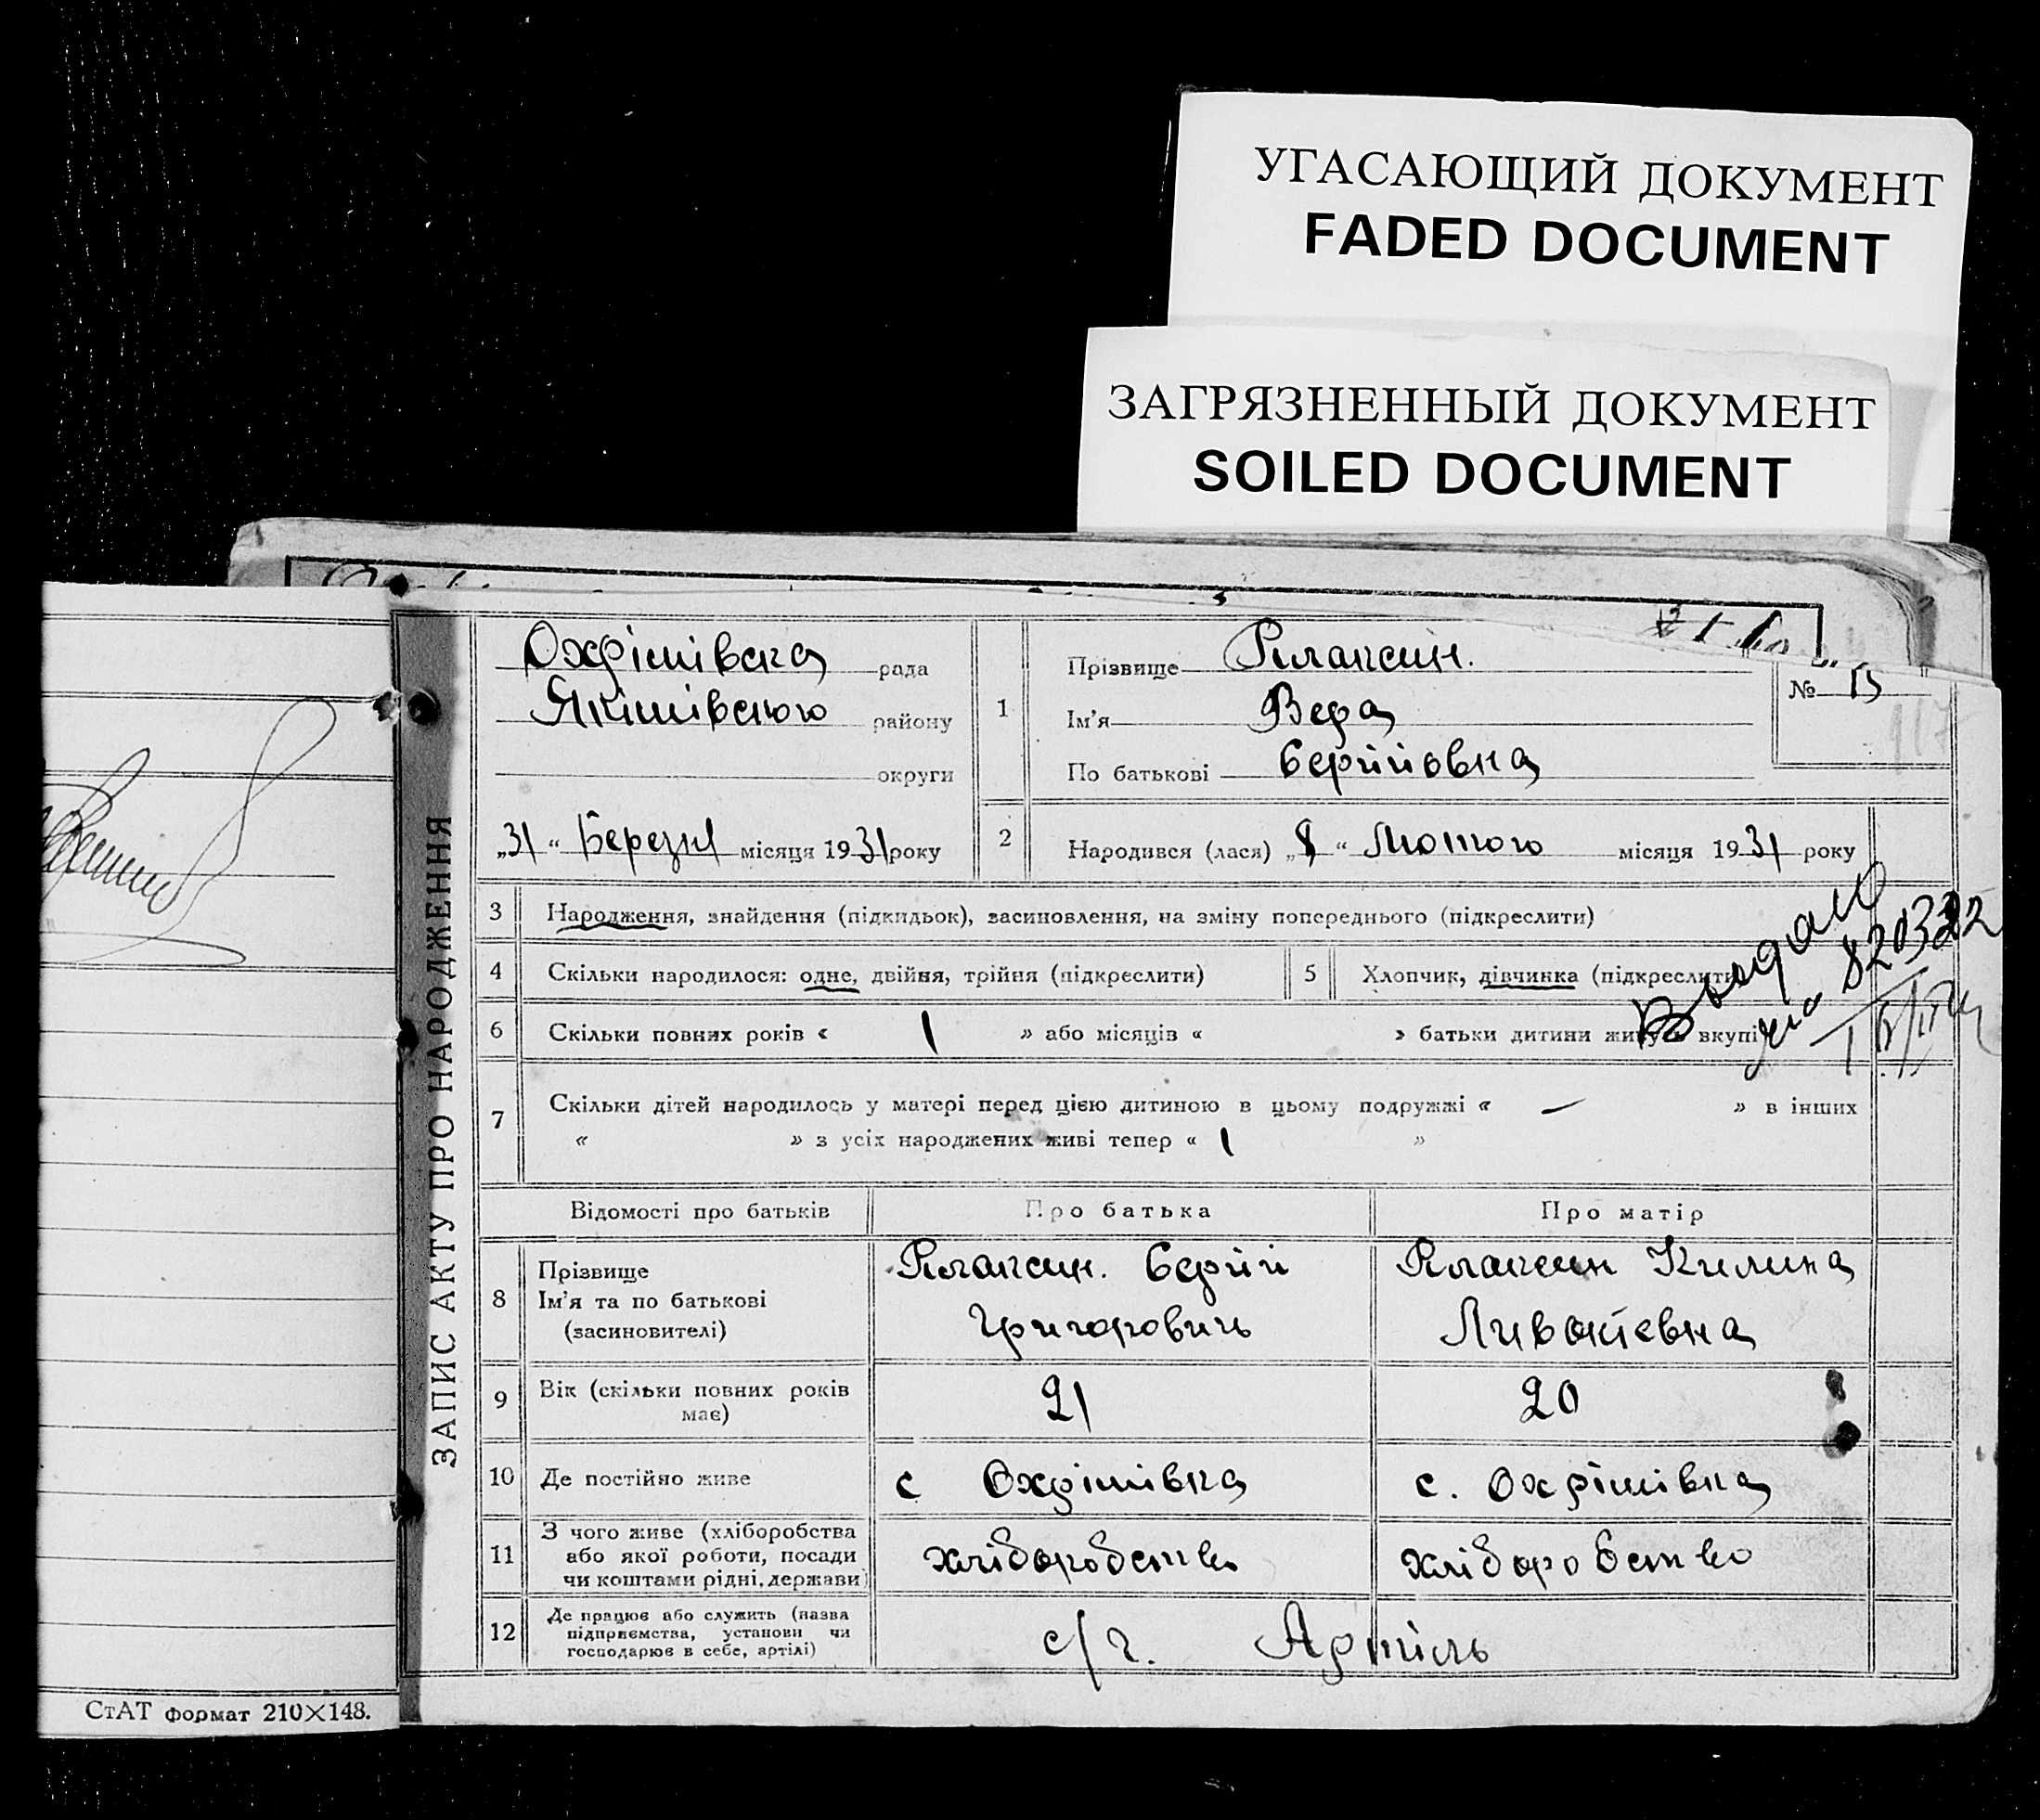 УГАСАЮЩИЙ ДОКУМЕНТ
FADED DOCUMENT
ЗАГРЯЗНЕННЫЙ ДОКУМЕНТ
SOILED DOCUMENT
ЗАПИС АКТУ ПРО НАРОДЖЕННЯ
Охрімівска рада
Якімівського району
округи
„31“ Березня місяця 1931 року
1
Прізвище Плаксин.
Ім'я Вера
По батькові Сергійовна
№ 15
117
2
Народився (лася) „8“ Лютого місяця 1931 року
3 Народження, знайдення (підкидьок), засиновлення, на зміну попереднього (підкреслити)
4 Скільки народилося: одне, двійня, трійня (підкреслити)
5 Хлопчик, дівчинка (підкреслити)
6 Скільки повних років « 1 » або місяців « » батьки дитини живуть вкупі
Выдано
820322
7 Скільки дітей народилось у матері перед цією дитиною в цьому подружжі « — » в інших
« » з усіх народжених живі тепер « 1 »
Відомості про батьків Про батька Про матір
8 Прізвище
Ім'я та по батькові
(засиновителі)
Плаксин. Сергій
Григорович
Плаксин Килина
9 Вік (скільки повних років
має)
21
20
10 Де постійно живе
с Охрімівка
с. Охрімівка
11 З чого живе (хліборобства
або якої роботи, посади
чи коштами рідні, держави)
хліборобство
хліборобство
12 Де працює або служить (назва
підприємства, установи чи
господарює в себе, артілі)
с/г. Артіль
СтАТ формат 210×148.